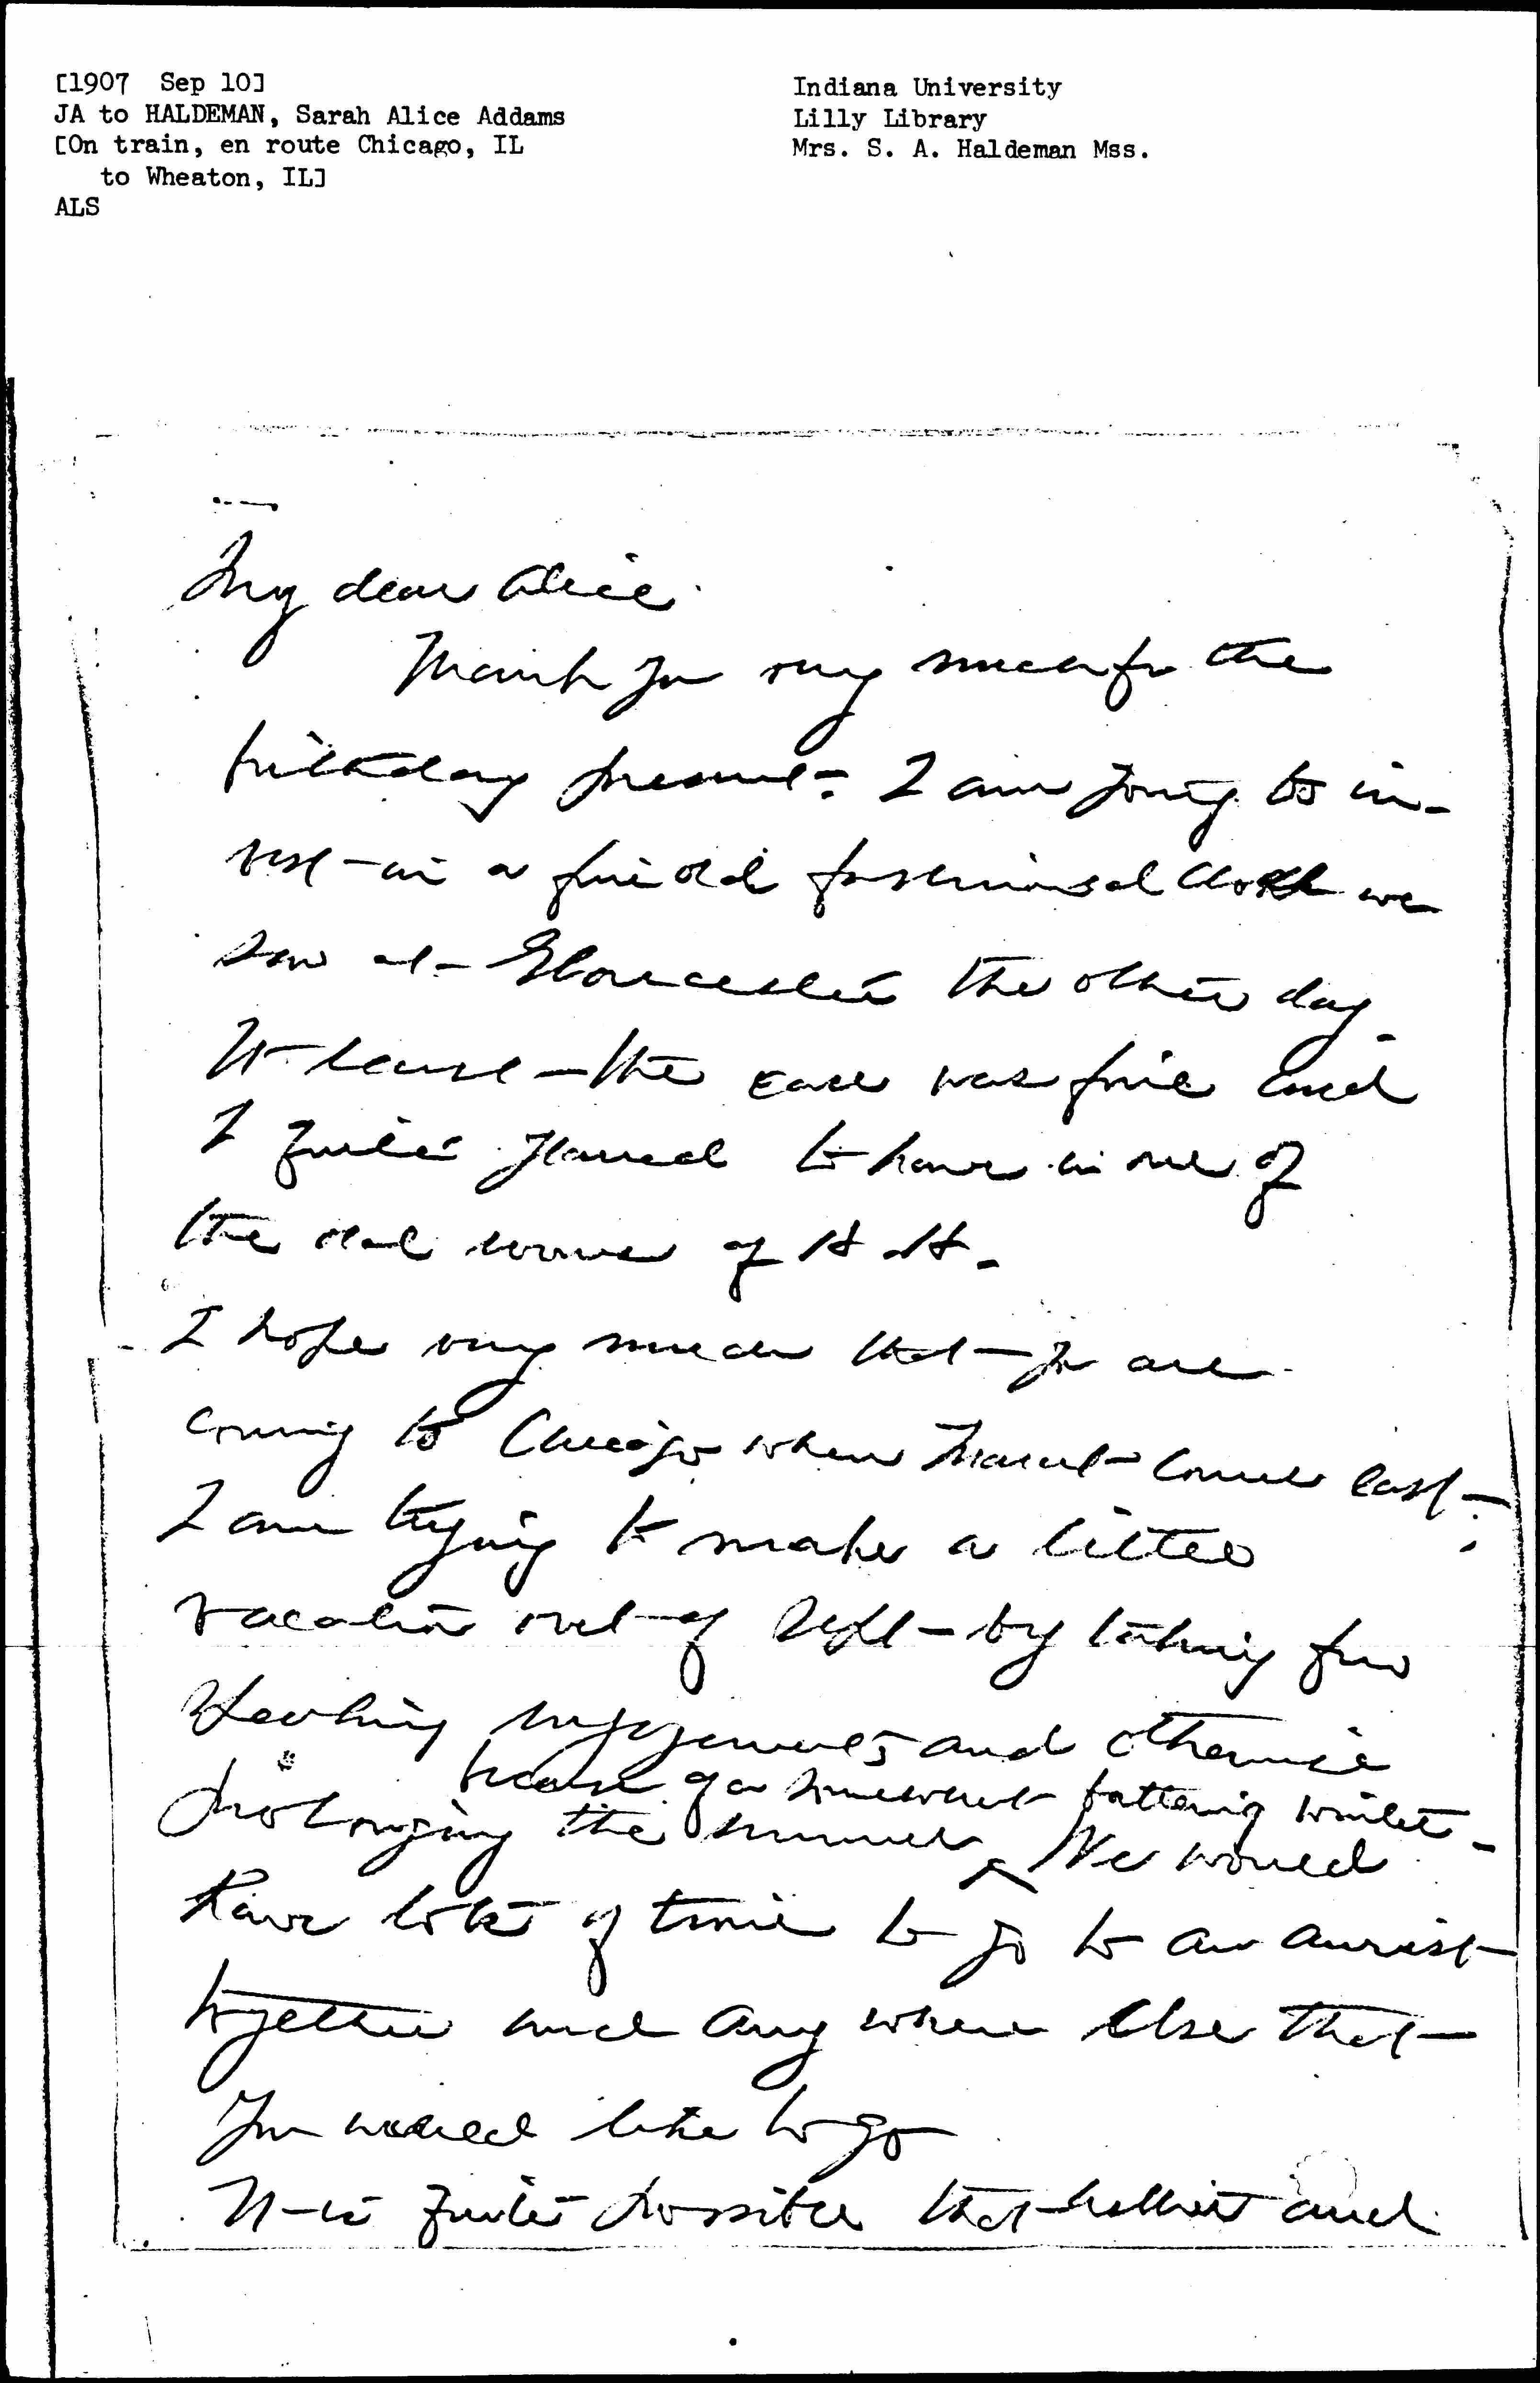 [1907 Sep 10]
JA to HALDEMAN, Sarah Alice Addams
[On train, en route Chicago, IL
to Wheaton, IL]
ALS
Indiana University
Lilly Library
Mrs. S. A. Haldeman Mss.
My dear Alice
Thank you very much for the
birthday present. I am going to in-
vest in a fine old fashioned clock we
saw at Gloucester the other day.
At least the case was fine and
I quite planned to have in one of
the old rooms of H H.
I hope very much that you are
coming to Chicago when Marcet comes east.
I am trying to make a little
vacation out of Sept by taking few
speaking engagements and otherwise
prolonging the summer
because of a somewhat fattening winter.
We would
have lots of time to go to an aurist
together and any where else that
you would like to go
It is quite possible that and